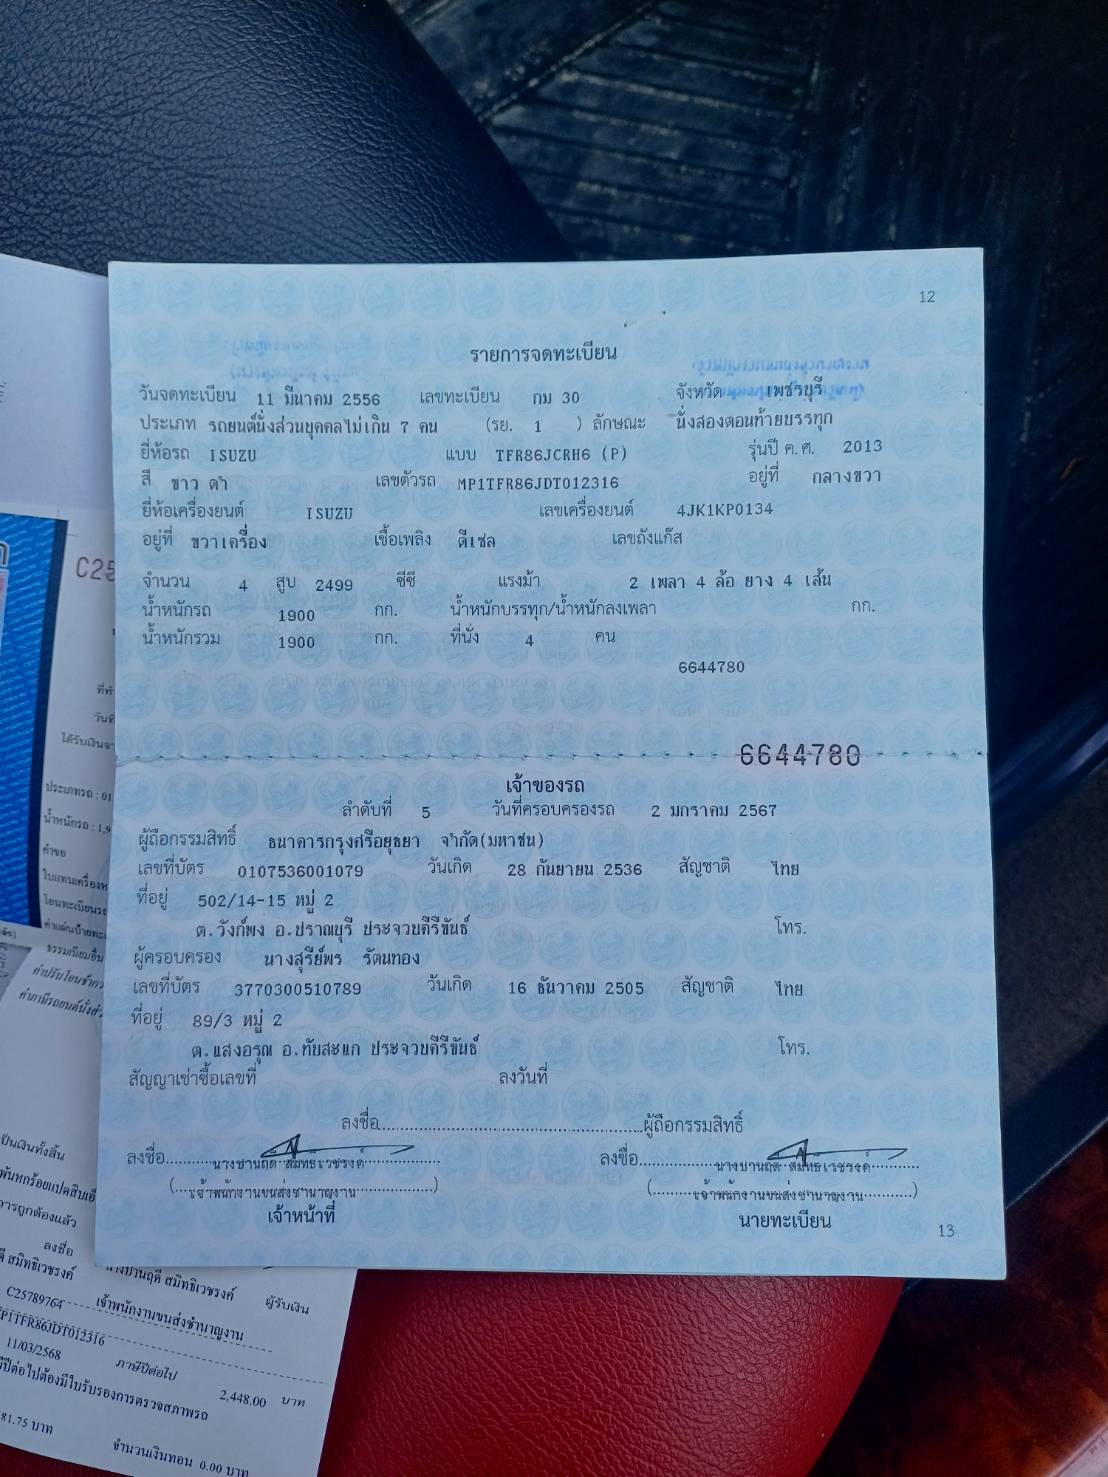 12
รายการจดทะเบียน
วันจดทะเบียน 11 มีนาคม 2556 เลขทะเบียน กม 30 จังหวัด เพชรบุรี
ประเภท รถยนต์นั่งส่วนบุคคลไม่เกิน 7 คน (รย. 1 ) ลักษณะ นั่งสองตอนท้ายบรรทุก
ยี่ห้อรถ ISUZU แบบ TFR86JCRH6 (P) รุ่นปี ค.ศ. 2013
สี ขาว ดำ เลขตัวรถ MP1TFR86JDT012316 อยู่ที่ กลางขวา
ยี่ห้อเครื่องยนต์ ISUZU เลขเครื่องยนต์ 4JK1KP0134
อยู่ที่ ขวาเครื่อง เชื้อเพลิง ดีเซล เลขถังแก๊ส
จำนวน 4 สูบ 2499 ซีซี แรงม้า 2 เพลา 4 ล้อ ยาง 4 เส้น
น้ำหนักรถ 1900 กก. น้ำหนักบรรทุก/น้ำหนักลงเพลา กก.
น้ำหนักรวม 1900 กก. ที่นั่ง 4 คน
6644780
6644780
เจ้าของรถ
ลำดับที่ 5 วันที่ครอบครองรถ 2 มกราคม 2567
ผู้ถือกรรมสิทธิ์ ธนาคารกรุงศรีอยุธยา จำกัด(มหาชน)
เลขที่บัตร 0107536001079 วันเกิด 28 กันยายน 2536 สัญชาติ ไทย
ที่อยู่ 502/14-15 หมู่ 2
ต.วังก์พง อ.ปราณบุรี ประจวบคีรีขันธ์ โทร.
ผู้ครอบครอง นางสุรีย์พร รัตนทอง
เลขที่บัตร 3770300510789 วันเกิด 16 ธันวาคม 2505 สัญชาติ ไทย
ที่อยู่ 89/3 หมู่ 2
ต.แสงอรุณ อ.ทับสะแก ประจวบคีรีขันธ์ โทร.
สัญญาเช่าซื้อเลขที่ ลงวันที่
ลงชื่อ ผู้ถือกรรมสิทธิ์
ลงชื่อ นางปานฤดี สมิทธิเวชรงค์ ลงชื่อ นางปานฤดี สมิทธิเวชรงค์
( เจ้าพนักงานขนส่งชำนาญงาน ) ( เจ้าพนักงานขนส่งชำนาญงาน )
เจ้าหน้าที่ นายทะเบียน
13
C25
ได้รับเงิน
ประเภทรถ : 01
น้ำหนักรถ : 1,9
คำขอ
ป็นเงินทั้งสิ้น
พันหกร้อยแปดสิบเอ็
การถูกต้องแล้ว
ลงชื่อ
ดี สมิทธิเวชรงค์ นางปานฤดี สมิทธิเวชรงค์ ผู้รับเงิน
C25789764 เจ้าพนักงานขนส่งชำนาญงาน
MP1TFR86JDT012316
11/03/2568 ภาษีปีต่อไป 2,448.00 บาท
ปีต่อไปต้องมีใบรับรองการตรวจสภาพรถ
81.75 บาท จำนวนเงินทอน 0.00 บาท